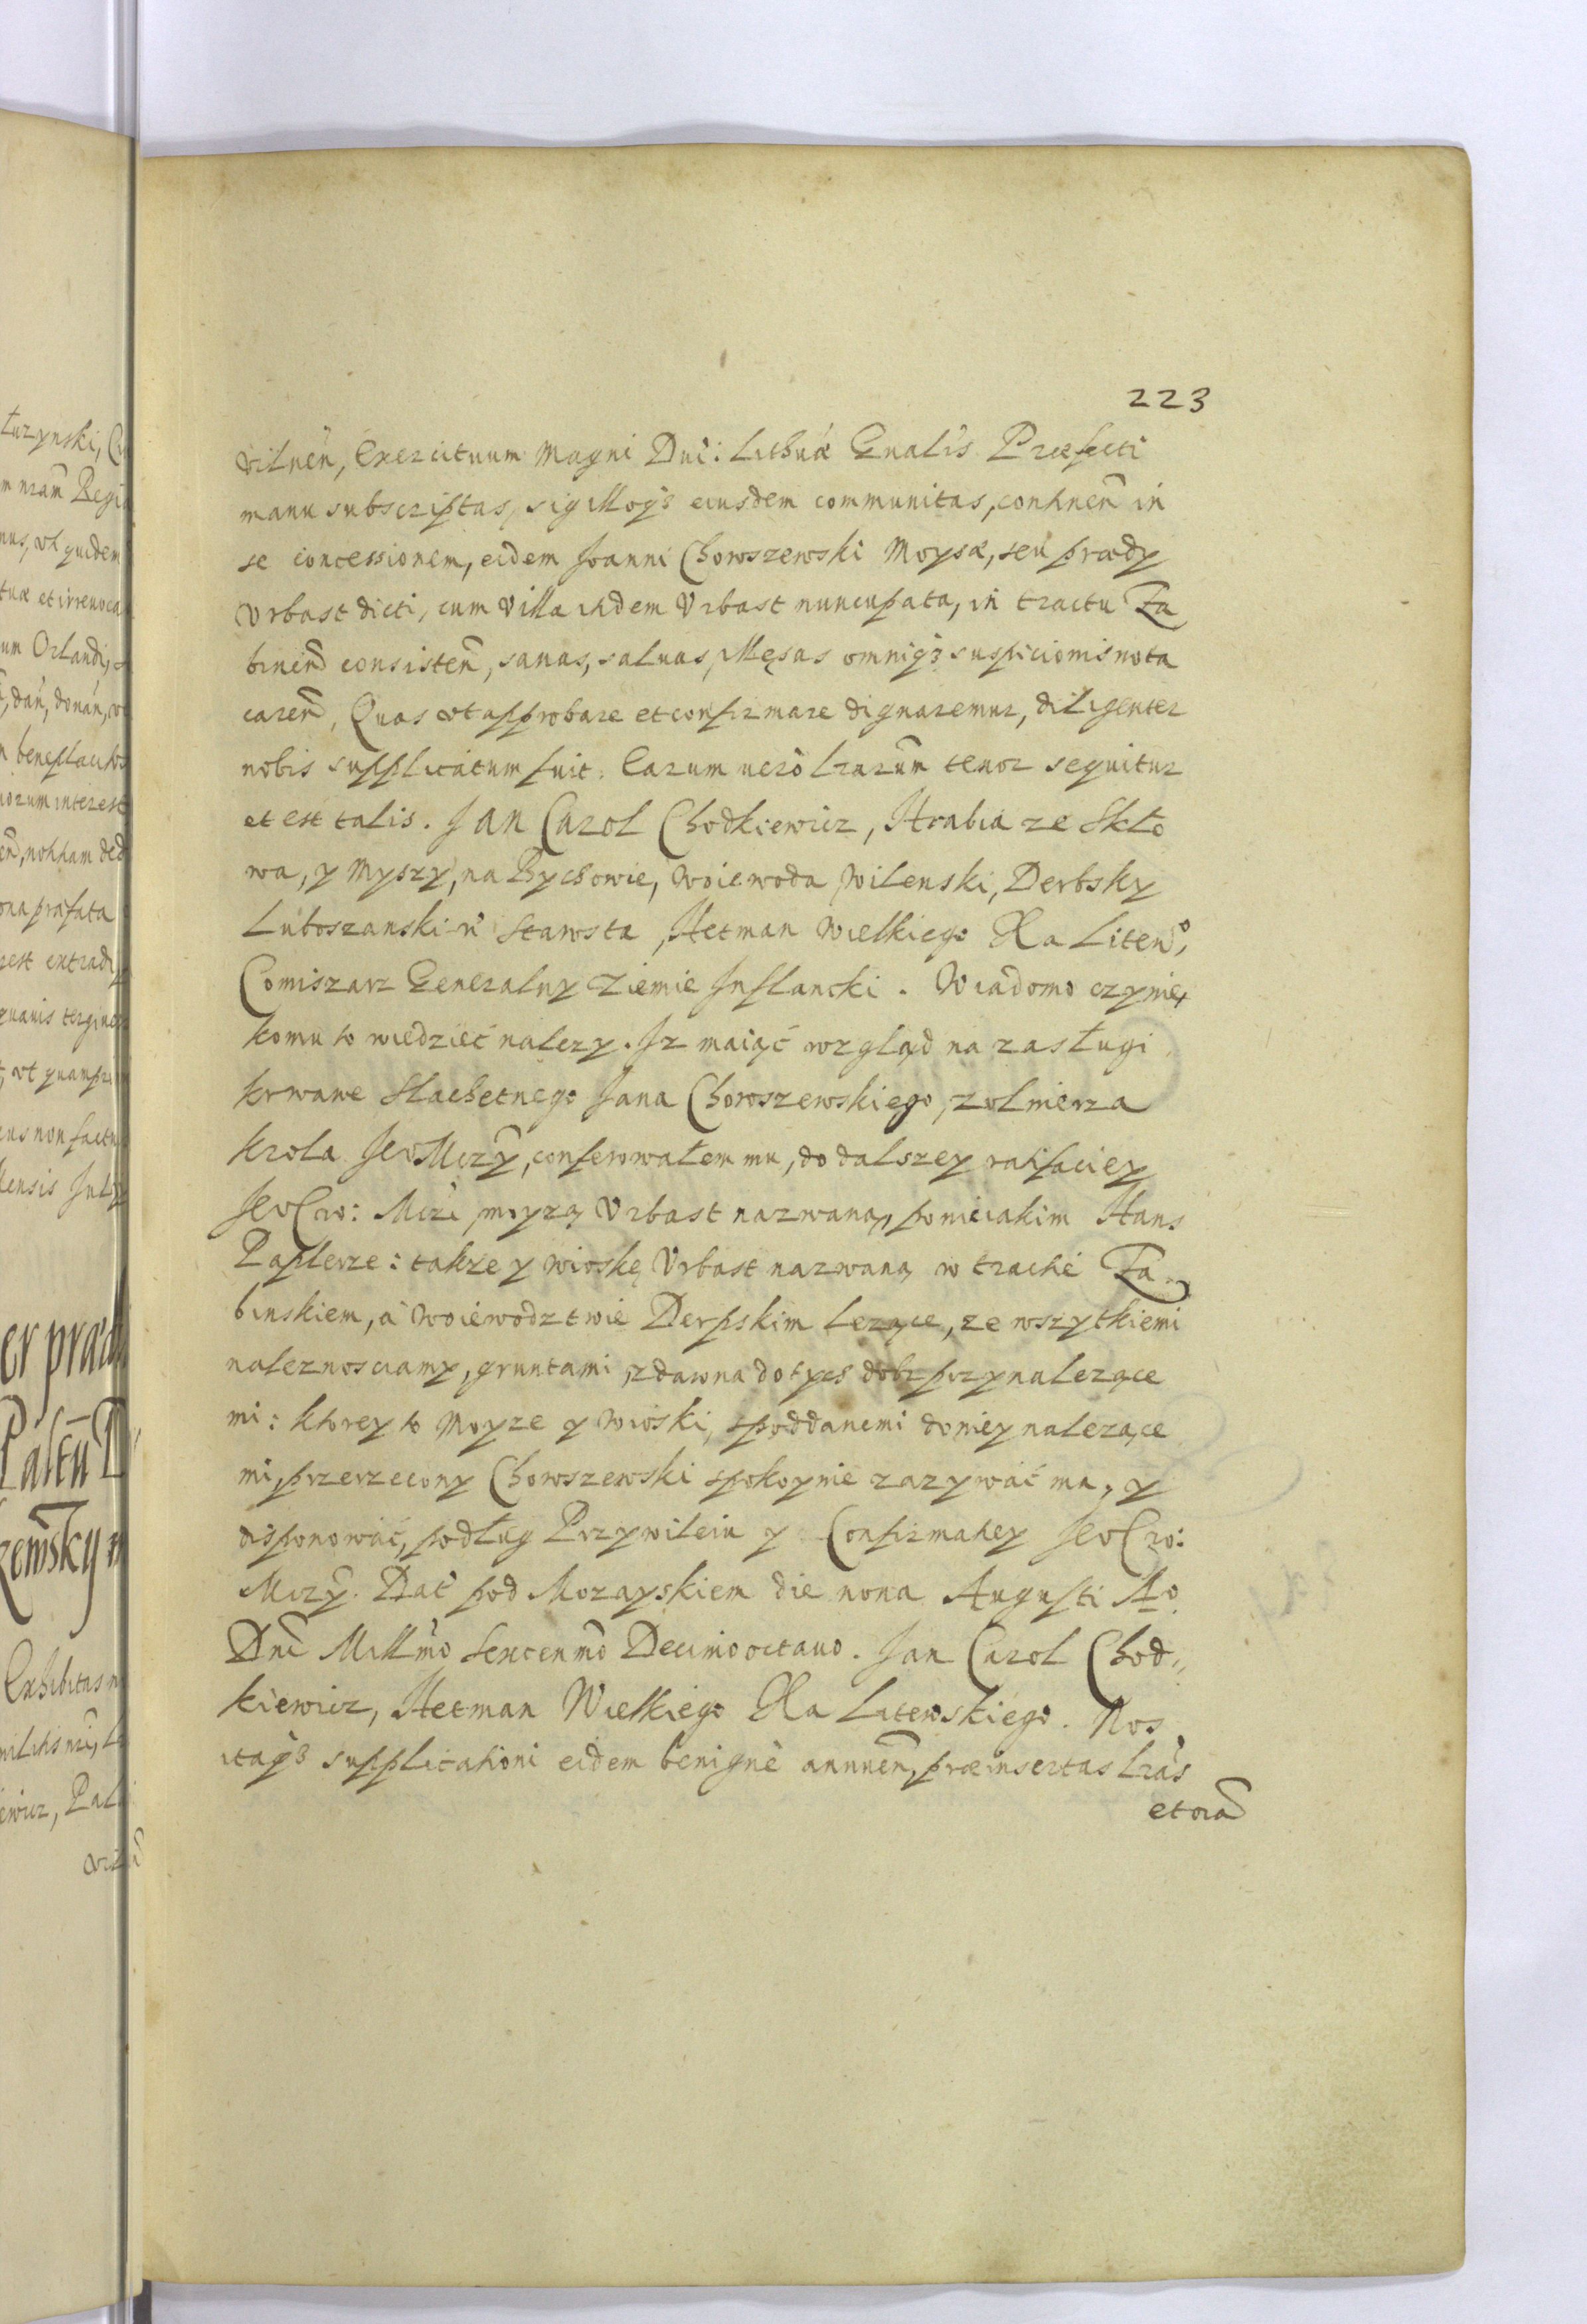 223
vilnen̄, Exercituum Magni Duc: Lithuæ Gnalis Præfecti
manu subscriptas, sigilloq3 eiusdem communitas, continen̄ in
se concessionem, eidem Joanni Choroszewski Moysæ, seu prædy
Vrbast dicti, cum Villa itidem Vrbast nuncupata, in tractu Za
binen̄ consisten̄, sanas, saluas, illęsas omniq3 suspicionis nota
caren̄, Quas vt approbare et confirmare dignaremur, diligenter
nobis supplicatum fuit. Earum uerò Lrarum̄ tenor sequitur
et est talis. JAN Carol Chodkiewicz, Hrabia ze Skło
wa, y Myszy, na Bychowie, Woiewoda Wilenski, Derbsky
Luboszanski etc̄ Starosta, Hetman Wielkiego Xa Litewo,
Comiszarz Generalny Ziemie Inflancki. Wiadomo czynię,
komu to wiedzieć nalezy. Iz maiąć wzgląd na zasługi
krwawe Slachetnego Jana Choroszewskiego, zolnierza
krola JeoMczỹ, conferowałem mu, do dalszey ratifaciey
JeoCro: Mczi, moyzą Vrbast nazwaną, po nieiakim Hans
Paplerze: takze y wioskę Vrbast nazwaną w tractie Za
binskiem, a Woiewodztwie Derpskim lezące, ze wszytkiemi
naleznosciamy, gruntami, zdawna do tych dobr przynalezące
mi: ktorey to Moyze y wioski, spoddanemi do niey nalezące
mi, przerzecony Choroszewski spokoynie zazywać ma, y
disponowáć, podług Przywileiu y Confirmatiey JeoCro:
Mczỹ. Dat pod Mozayskiem die nona Augusti Ao
Dnĩ Millmo Sexcenmo Decimo octauo. Jan Carol Chod„
kiewicz, Hetman Wielkiego Xa Litewskiego. Nos
itaq3 supplicationi eidem benignè annuen̄, præinsertas Lras
et oĩa